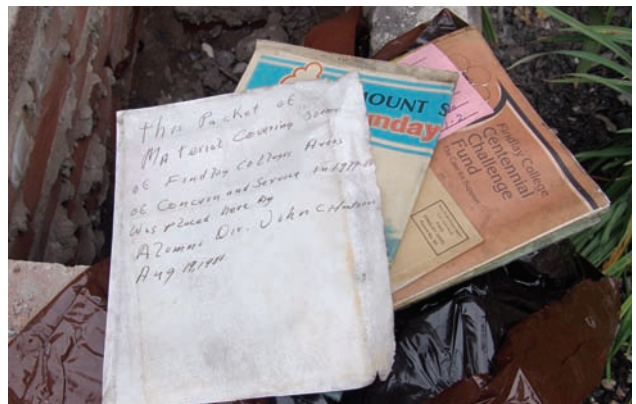 This Packet of
MATerial Covering some
of Findlay College Areas
of Concern and Service in
was placed here By
Alumni Dir. John C
Aug 19 1981
MOUNT S
unday
Findlay College
Centennial
Challenge
Fund